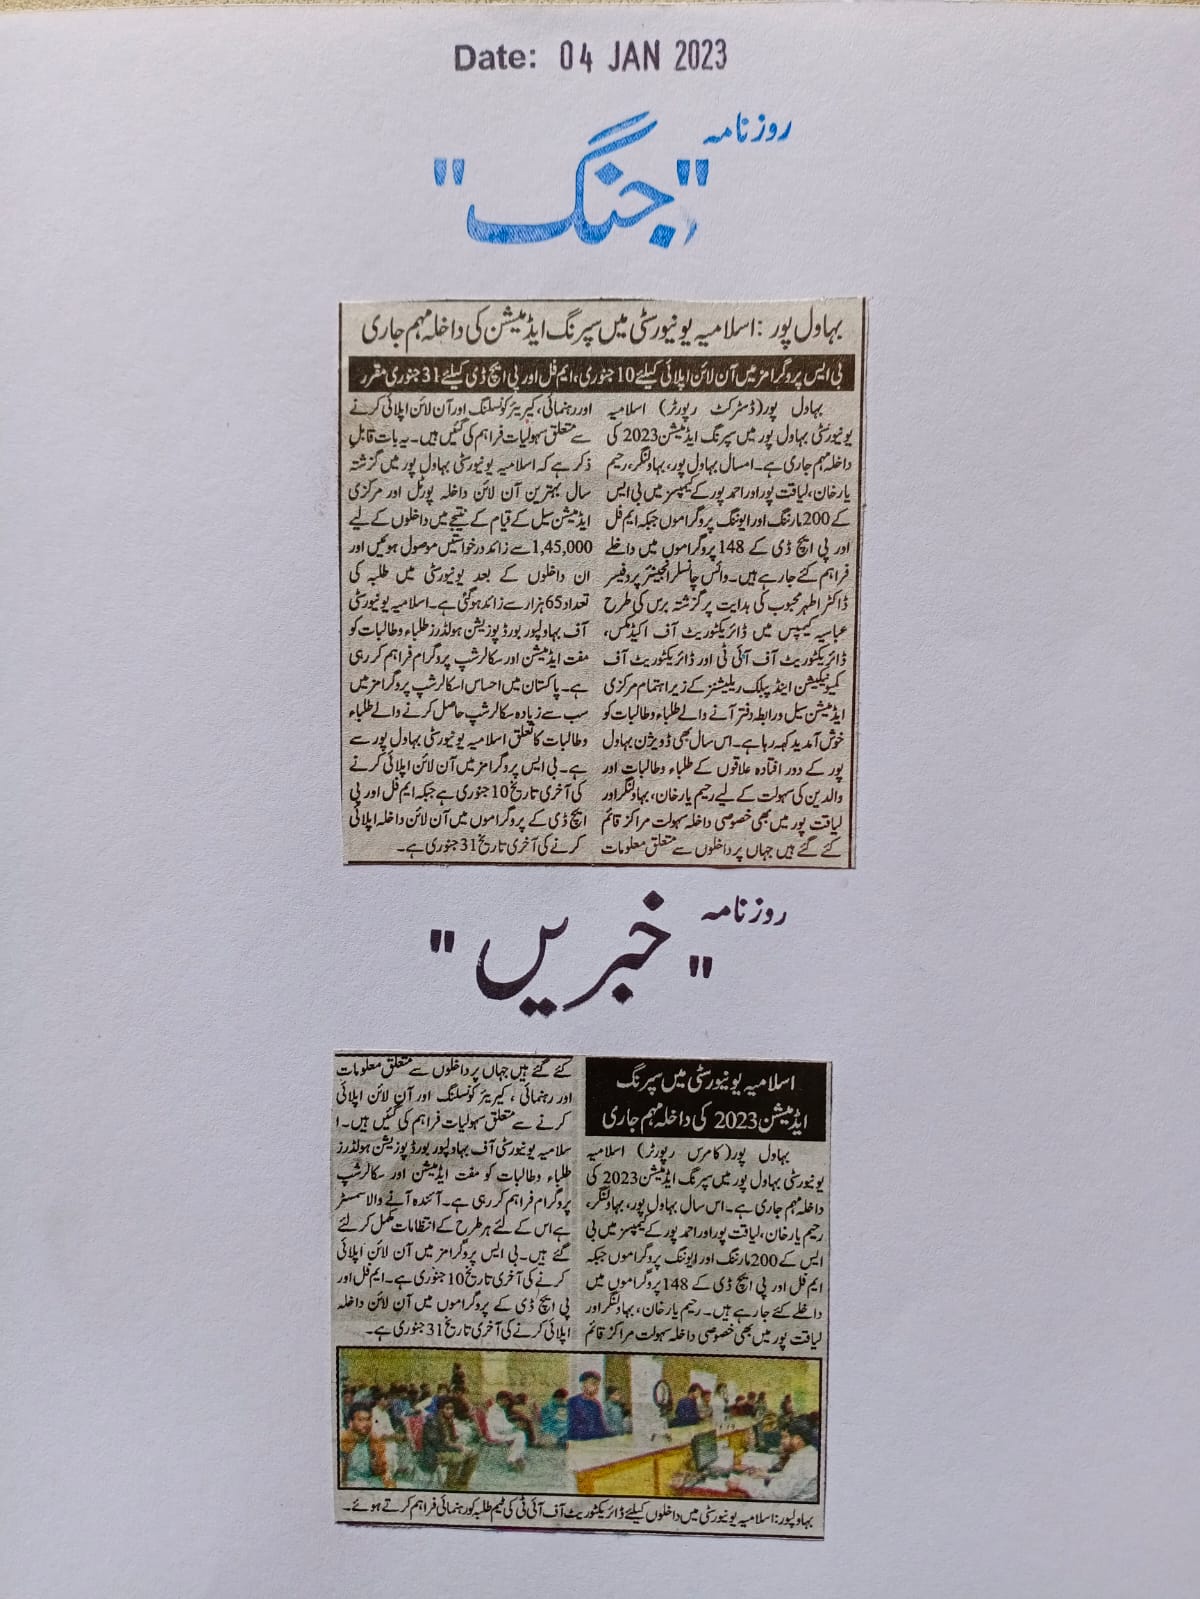 Date: 04 JAN 2023
روزنامہ
"جنگ"
بہاول پور : اسلامیہ یونیورسٹی میں سپرنگ ایڈمیشن کی داخلہ مہم جاری
بی ایس پروگرامز میں آن لائن اپلائی کیلئے 10 جنوری، ایم فل اور پی ایچ ڈی کیلئے 31 جنوری مقرر
بہاول پور (ڈسٹرکٹ رپورٹر) اسلامیہ
یونیورسٹی بہاول پور میں سپرنگ ایڈمیشن 2023 کی
داخلہ مہم جاری ہے۔ امسال بہاول پور، بہاولنگر، رحیم
یار خان، لیاقت پور اور احمد پور کے کیمپس میں بی ایس
کے 200 مارننگ اور ایوننگ پروگراموں جبکہ ایم فل
اور پی ایچ ڈی کے 148 پروگراموں میں داخلے
فراہم کئے جا رہے ہیں۔ وائس چانسلر انجینئر پروفیسر
ڈاکٹر اطہر محبوب کی ہدایت پر گزشتہ برس کی طرح
عباسیہ کیمپس میں ڈائریکٹوریٹ آف اکیڈمکس،
ڈائریکٹوریٹ آف آئی ٹی اور ڈائریکٹوریٹ آف
کمیونیکیشن اینڈ پبلک ریلیشنز کے زیر اہتمام مرکزی
ایڈمیشن سیل و رابطہ دفتر آنے والے طلباء و طالبات کو
خوش آمدید کہہ رہا ہے۔ اس سال بھی ڈویژن بہاول
پور کے دور افتادہ علاقوں کے طلباء و طالبات اور
والدین کی سہولت کے لیے رحیم یار خان، بہاولنگر اور
لیاقت پور میں بھی خصوصی داخلہ سہولت مراکز قائم
کئے گئے ہیں جہاں پر داخلوں سے متعلق معلومات
اور رہنمائی، کیریئر کونسلنگ اور آن لائن اپلائی کرنے
سے متعلق سہولیات فراہم کی گئیں ہیں۔ یہ بات قابل
ذکر ہے کہ اسلامیہ یونیورسٹی بہاول پور میں گزشتہ
سال بہترین آن لائن داخلہ پورٹل اور مرکزی
ایڈمیشن سیل کے قیام کے نتیجے میں داخلوں کے لیے
1,45,000 سے زائد درخواستیں موصول ہوئیں اور
ان داخلوں کے بعد یونیورسٹی میں طلبہ کی
تعداد 65 ہزار سے زائد ہو گئی ہے۔ اسلامیہ یونیورسٹی
آف بہاولپور بورڈ پوزیشن ہولڈرز طلباء و طالبات کو
مفت ایڈمیشن اور سکالرشپ پروگرام فراہم کر رہی
ہے۔ پاکستان میں احساس اسکالرشپ پروگرامز میں
سب سے زیادہ سکالرشپ حاصل کرنے والے طلباء
و طالبات کا تعلق اسلامیہ یونیورسٹی بہاول پور سے
ہے۔ بی ایس پروگرامز میں آن لائن اپلائی کرنے
کی آخری تاریخ 10 جنوری ہے جبکہ ایم فل اور پی
ایچ ڈی کے پروگراموں میں آن لائن داخلہ اپلائی
کرنے کی آخری تاریخ 31 جنوری ہے۔
روزنامہ
"خبریں"
اسلامیہ یونیورسٹی میں سپرنگ
ایڈمیشن 2023 کی داخلہ مہم جاری
بہاول پور (کامرس رپورٹر) اسلامیہ
یونیورسٹی بہاول پور میں سپرنگ ایڈمیشن 2023 کی
داخلہ مہم جاری ہے۔ اس سال بہاول پور، بہاولنگر،
رحیم یار خان، لیاقت پور اور احمد پور کے کیمپسز میں بی
ایس کے 200 مارننگ اور ایوننگ پروگراموں جبکہ
ایم فل اور پی ایچ ڈی کے 148 پروگراموں میں
داخلے کئے جا رہے ہیں۔ رحیم یار خان، بہاولنگر اور
لیاقت پور میں بھی خصوصی داخلہ سہولت مراکز قائم
کئے گئے ہیں جہاں پر داخلوں سے متعلق معلومات
اور رہنمائی، کیریئر کونسلنگ اور آن لائن اپلائی
کرنے سے متعلق سہولیات فراہم کی گئیں ہیں۔ ا
سلامیہ یونیورسٹی آف بہاولپور بورڈ پوزیشن ہولڈرز
طلباء و طالبات کو مفت ایڈمیشن اور سکالرشپ
پروگرام فراہم کر رہی ہے۔ آئندہ آنے والا سمسٹر
ہے اس کے لئے ہر طرح کے انتظامات مکمل کر لئے
گئے ہیں۔ بی ایس پروگرامز میں آن لائن اپلائی
کرنے کی آخری تاریخ 10 جنوری ہے۔ ایم فل اور
پی ایچ ڈی کے پروگراموں میں آن لائن داخلہ
اپلائی کرنے کی آخری تاریخ 31 جنوری ہے۔
بہاولپور: اسلامیہ یونیورسٹی میں داخلوں کیلئے ڈائریکٹوریٹ آف آئی ٹی کی ٹیم طلبہ کو رہنمائی فراہم کرتے ہوئے۔